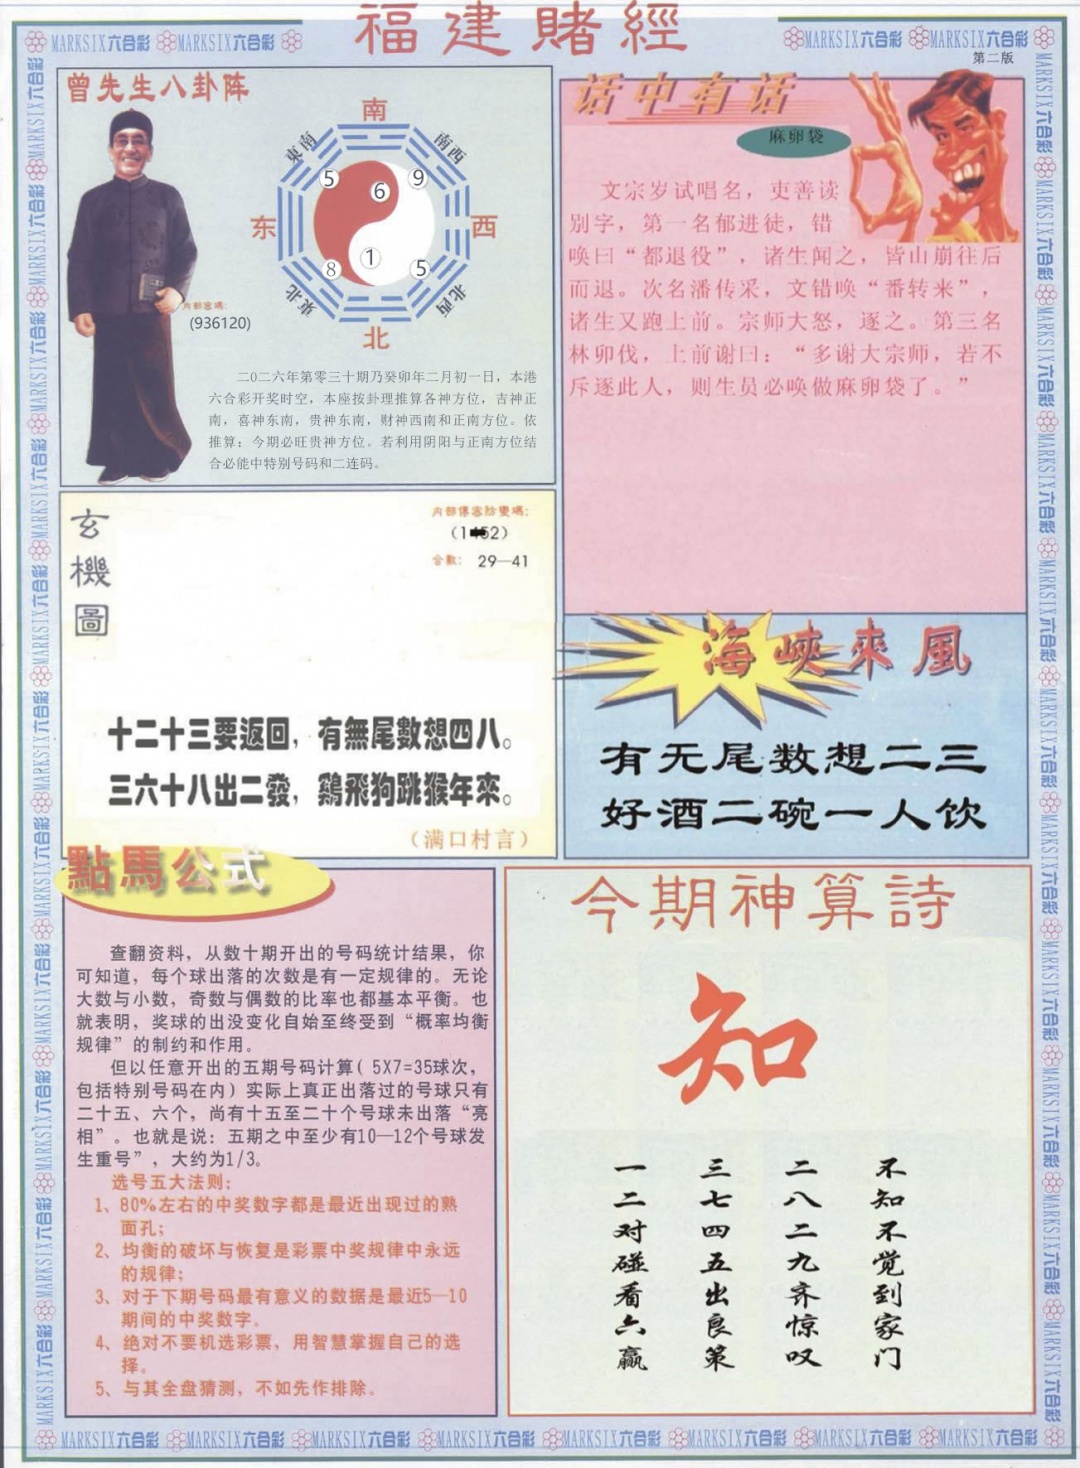 福建賭經
第二版
MARKSIX六合彩 MARKSIX六合彩
MARKSIX六合彩 MARKSIX六合彩
曾先生八卦阵
南
東南
南西
5
6
9
东
西
8
1
5
東北
北西
北
内部密碼:
(936120)
二〇二六年第零三十期乃癸卯年二月初一日，本港
六合彩开奖时空，本座按卦理推算各神方位，吉神正
南，喜神东南，贵神东南，财神西南和正南方位。依
推算：今期必旺贵神方位。若利用阴阳与正南方位结
合必能中特别号码和二连码。
话中有话
麻卵袋
文宗岁试唱名，吏善读
别字，第一名郁进徒，错
唤曰“都退役”，诸生闻之，皆山崩往后
而退。次名潘传采，文错唤“番转来”，
诸生又跑上前。宗师大怒，逐之。第三名
林卯伐，上前谢曰：“多谢大宗师，若不
斥逐此人，则生员必唤做麻卵袋了。”
玄機圖
内部傳密防變碼:
合數: 29—41
十二十三要返回，有無尾數想四八。
三六十八出二發，鷄飛狗跳猴年來。
（满口村言）
海峽來風
有无尾数想二三
好酒二碗一人饮
點馬公式
查翻资料，从数十期开出的号码统计结果，你
可知道，每个球出落的次数是有一定规律的。无论
大数与小数，奇数与偶数的比率也都基本平衡。也
就表明，奖球的出没变化自始至终受到“概率均衡
规律”的制约和作用。
但以任意开出的五期号码计算( 5X7=35球次，
包括特别号码在内）实际上真正出落过的号球只有
二十五、六个，尚有十五至二十个号球未出落“亮
相”。也就是说：五期之中至少有10—12个号球发
生重号”，大约为1/3。
选号五大法则；
1、80%左右的中奖数字都是最近出现过的熟
面孔；
2、均衡的破坏与恢复是彩票中奖规律中永远
的规律；
3、对于下期号码最有意义的数据是最近5—10
期间的中奖数字。
4、绝对不要机选彩票，用智慧掌握自己的选
择。
5、与其全盘猜测，不如先作排除。
今期神算詩
知
不知不觉到家门
二八二九齐惊叹
三七四五出良策
一二对碰看六赢
MARKSIX六合彩 MARKSIX六合彩 MARKSIX六合彩 MARKSIX六合彩 MARKSIX六合彩 MARKSIX六合彩 MARKSIX六合彩 MARKSIX六合彩